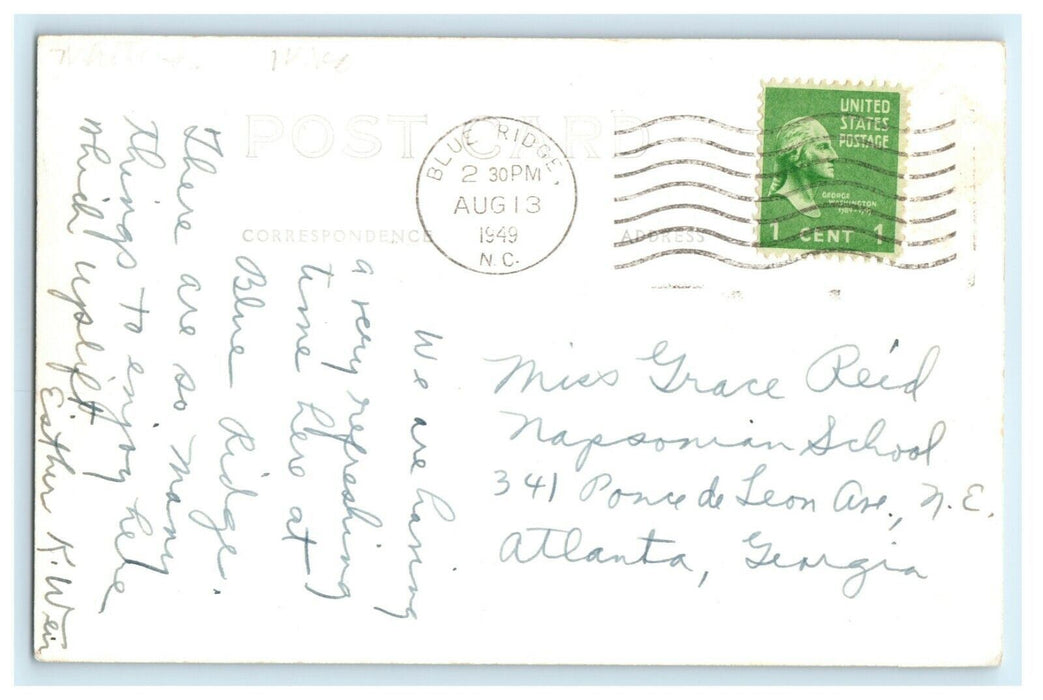 POST CARD
BLUE RIDGE,
2 30PM
AUG 13
1949
N.C.
UNITED
STATES
POSTAGE
GEORGE
WASHINGTON
1 CENT 1
CORRESPONDENCE
ADDRESS
We are having
a very refreshing
time here at
Blue Ridge.
There are so many
things to enjoy here
which uplift
Esther K. Weir
Miss Grace Reid
Napsonian School
341 Ponce de Leon Ave., N.E.
Atlanta, Georgia